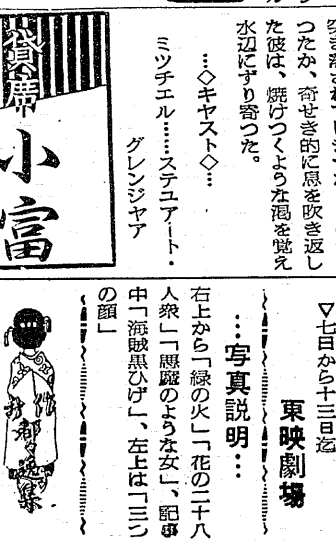 つたか、奇せき的に息を吹き返し
た彼は、焼けつくような渇を覚え
水辺にずり寄つた。
…◇キヤスト◇…
ミツチエル……ステユアート・
グレンジヤア
貸席
小富
▽七日から十三日迄
東映劇場
…写真説明…
右上から「緑の火」「花の二十八
人衆」「悪魔のような女」、記事
中「海賊黒ひげ」、左上は「三つ
の顔」